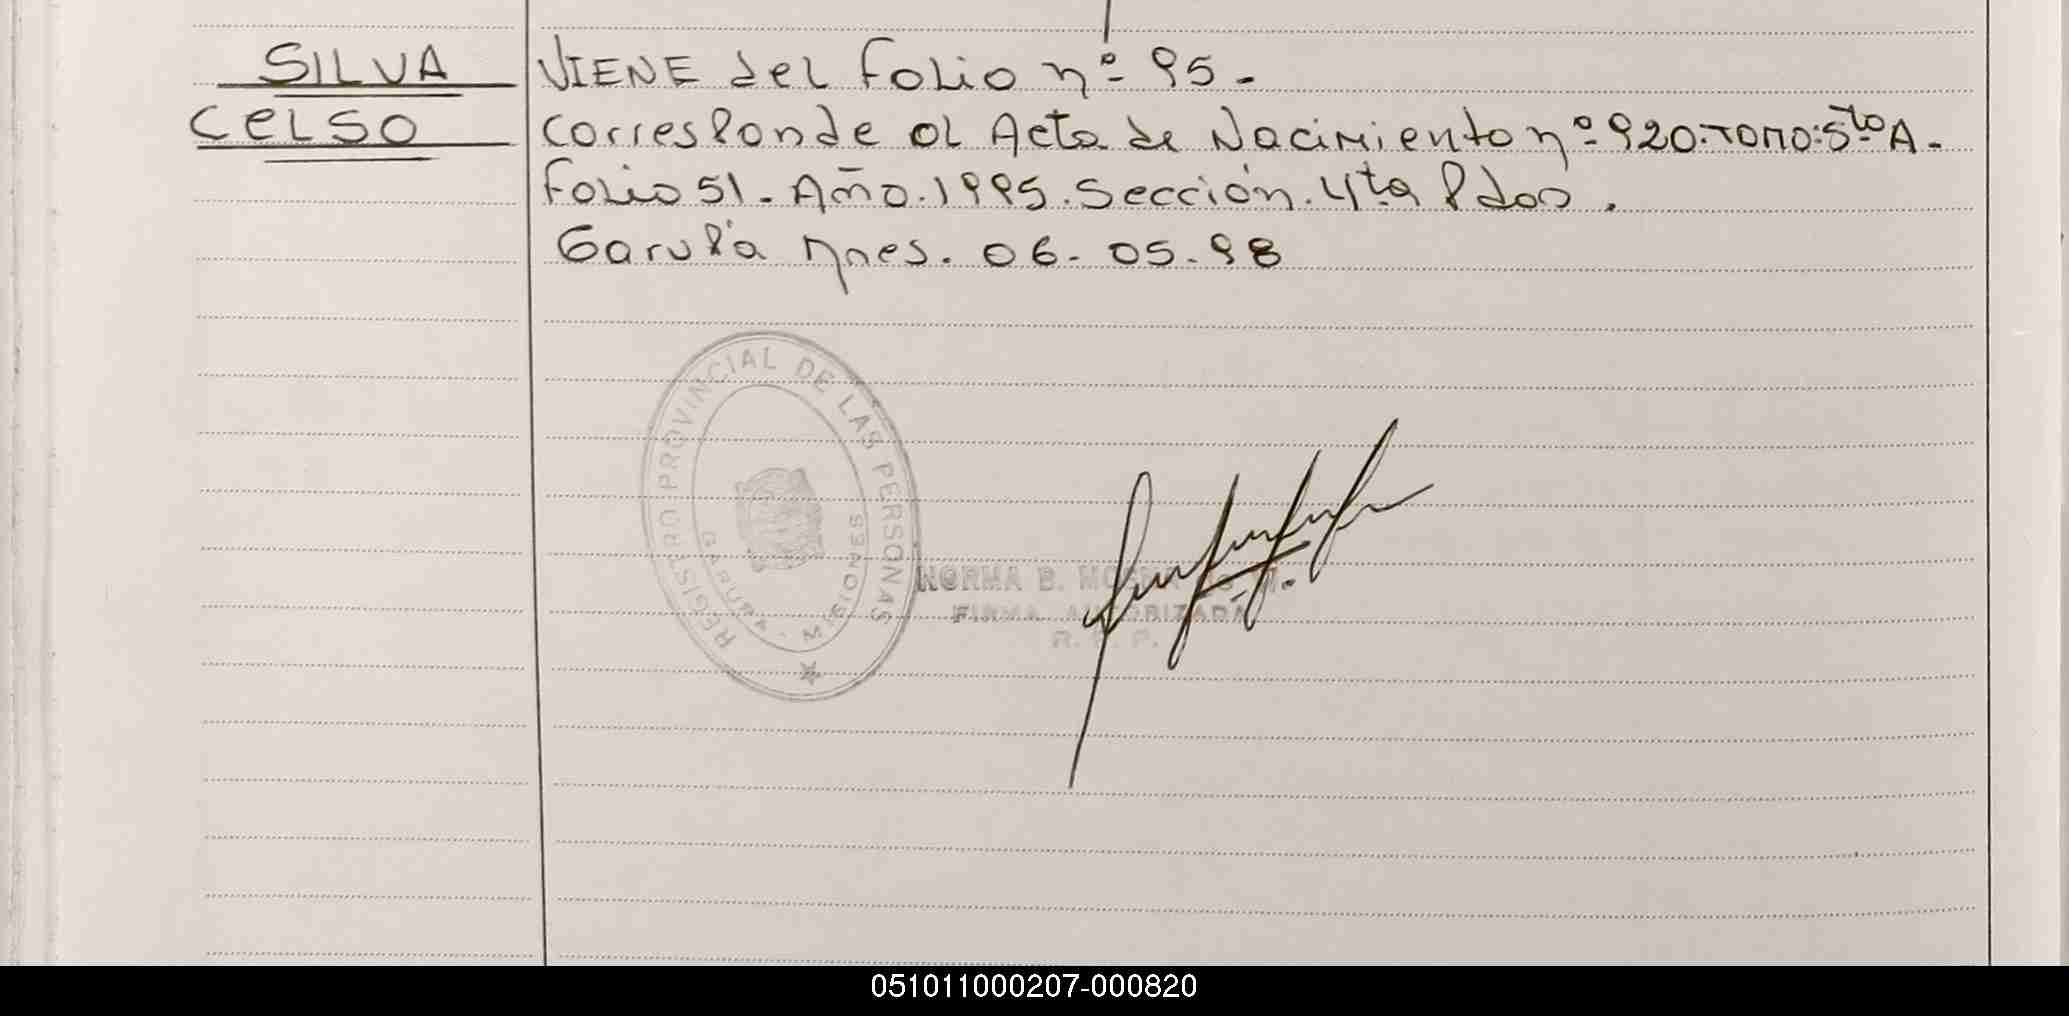 SILVA
CELSO
VIENE del Folio nº 95.
Corresponde al Acta de Nacimiento nº 920. TOMO: 5to A.
Folio 51. Año. 1995. Sección. 4ta Pdas.
Garupá Mnes. 06. 05. 98
REGISTRO PROVINCIAL DE LAS PERSONAS
GARUPA - MISIONES
NORMA B.
FIRMA AUTORIZADA
R. P. P.
051011000207-000820